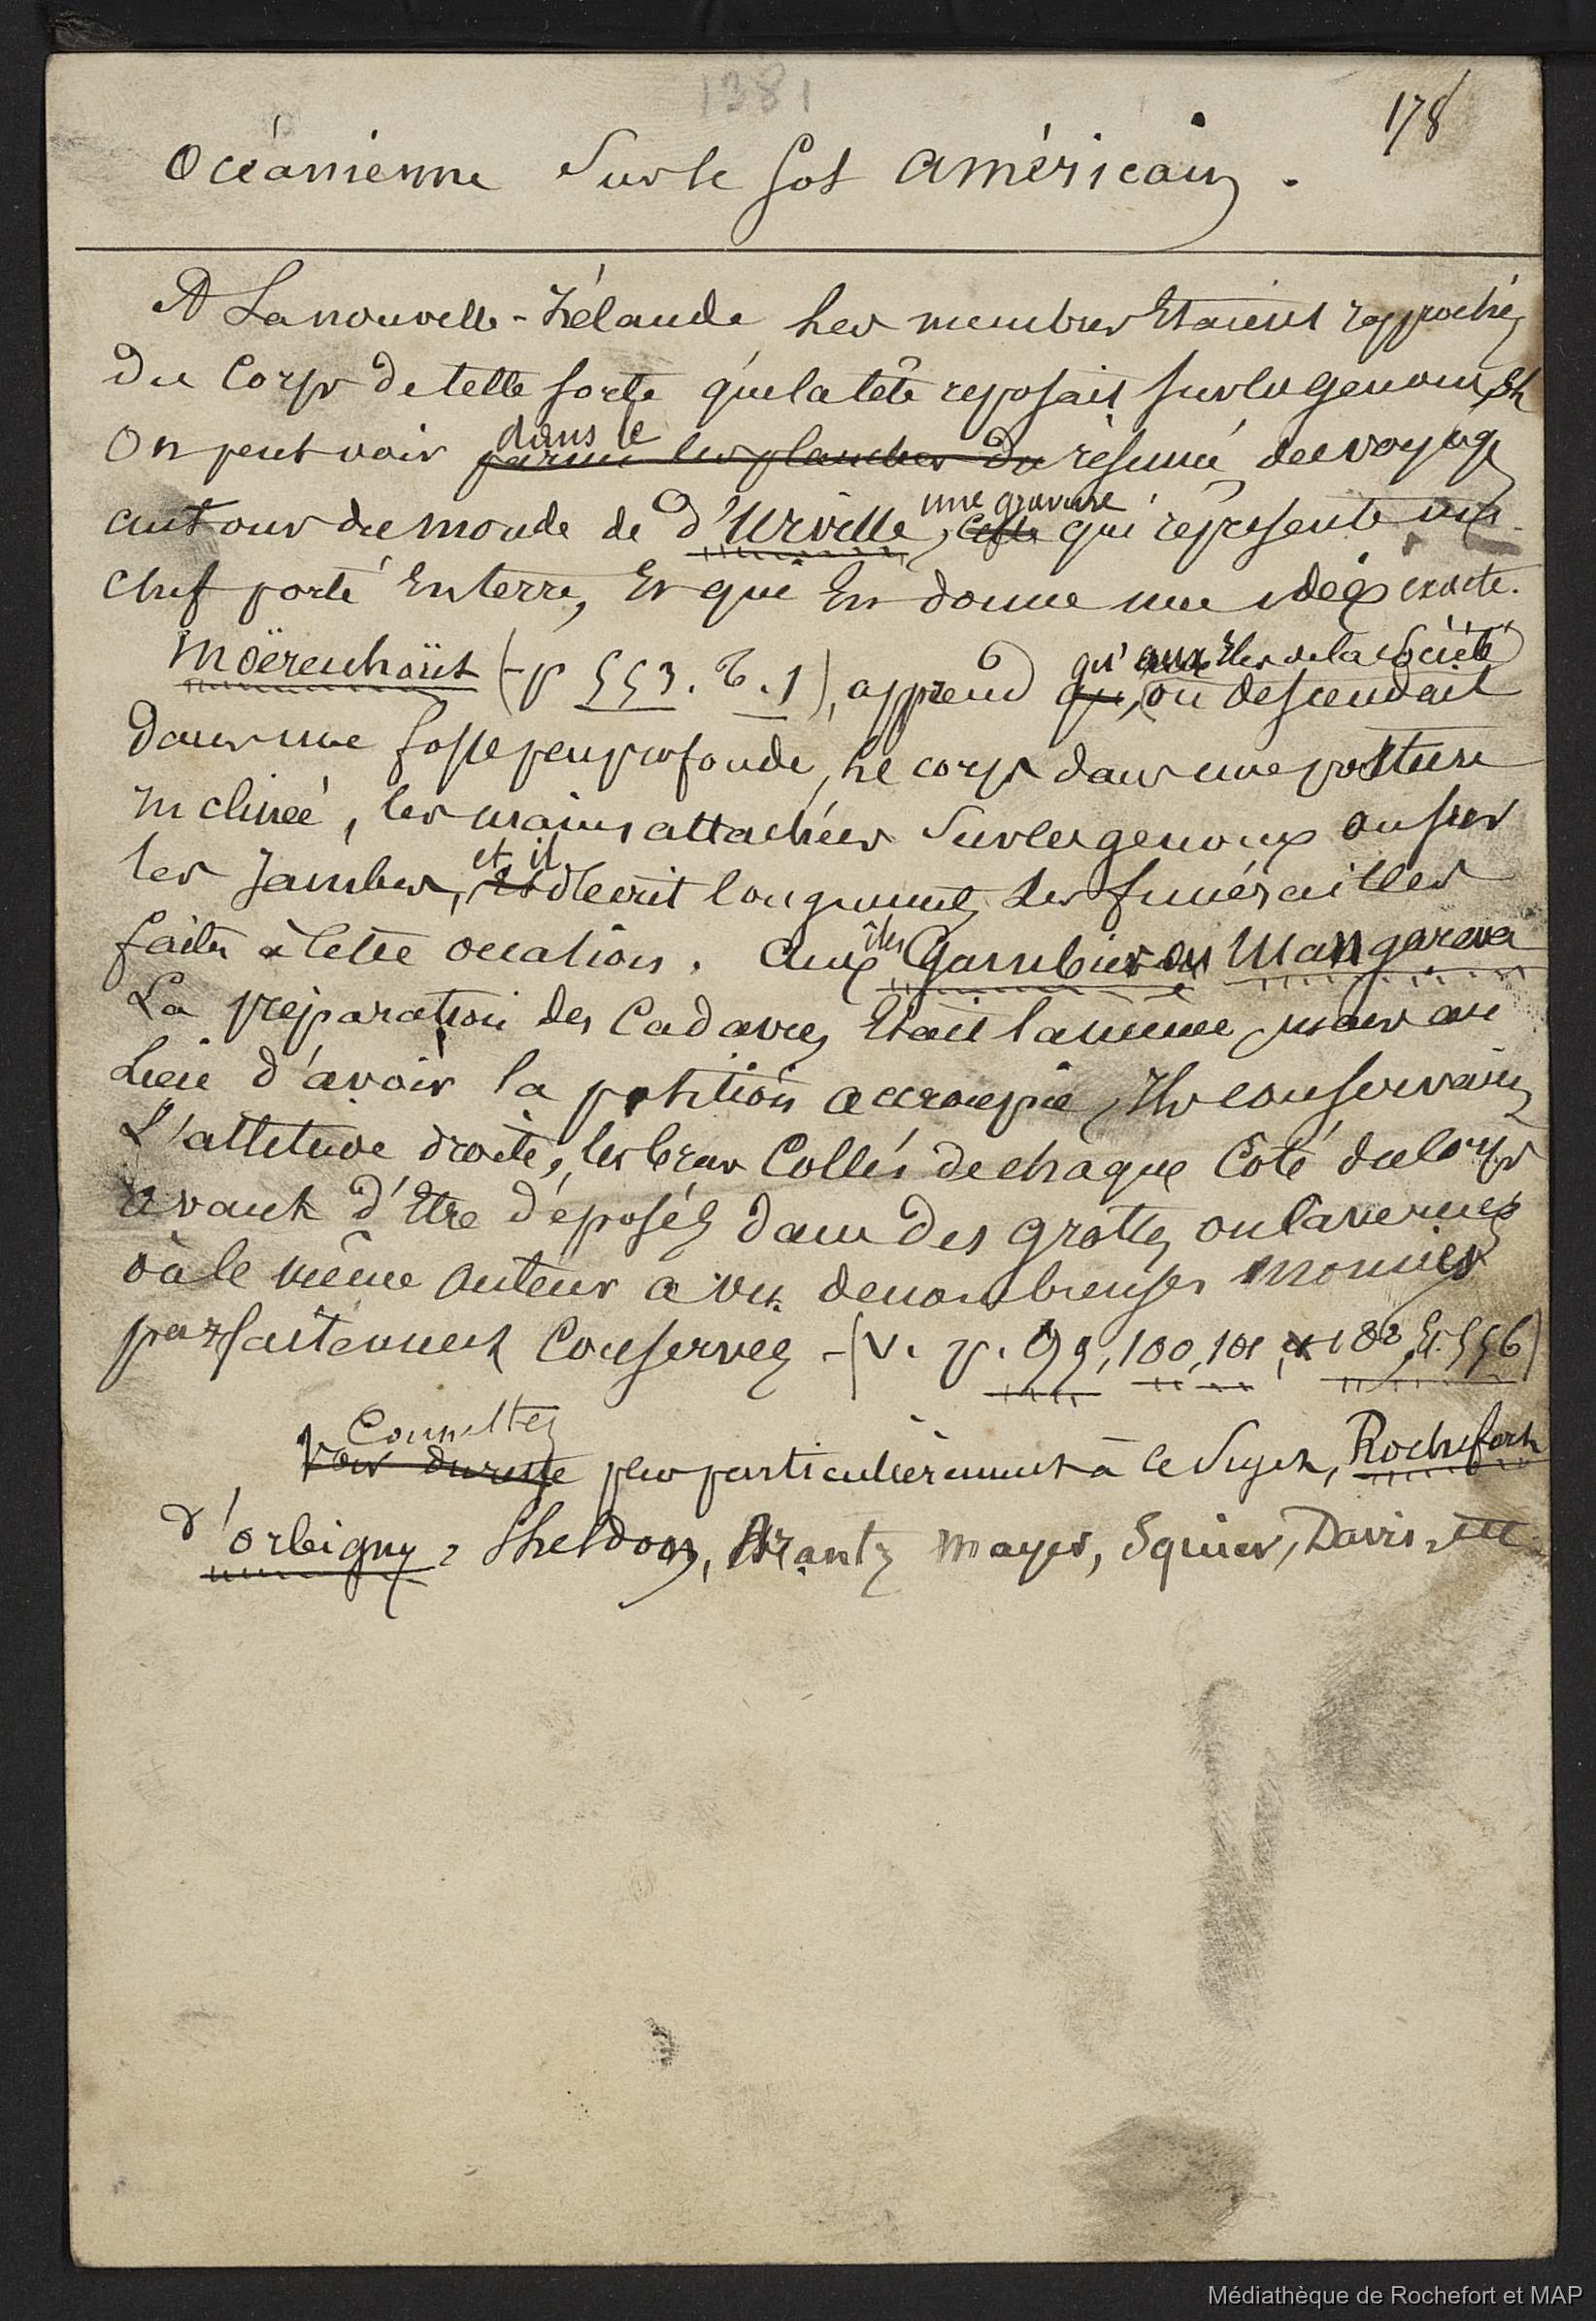 1381
178
Océanienne sur le sol américain.
A La nouvelle-Zélande les membres étaient rapprochés
du corps de telle sorte que la tête reposait sur les genoux, et
dans le
on peut voir parmi les planches du résumé des voyages
une gravure
autour du monde de d'Urville, celle qui représente un
chef porté en terre, et qui en donne une idée exacte.
qu'aux Iles de la Société
Moërenhoüt (- p 553. T. 1), apprend qu', on descendait
dans une fosse peu profonde, le corps dans une posture
inclinée, les mains attachées sur les genoux ou sur
et il
les jambes, et décrit longuement les funérailles
îles
faites à cette occasion. Aux Gambier ou Mangareva
La préparation des cadavres était la même, mais au
Lieu d'avoir la position accroupie, Ils conservaient
L'attitude droite, les bras collés de chaque côté du corps
avant d'être déposés dans des grottes ou cavernes
où le même auteur a vu de nombreuses momies
parfaitement conservées - (V. p. 99, 100, 101, 102, et 556)
Consultez
Voir du reste plus particulièrement à ce sujet, Rochefort
d'orbigny, Sheldon, Arantz mayer, Squier, Davis, etc.
Médiathèque de Rochefort et MAP